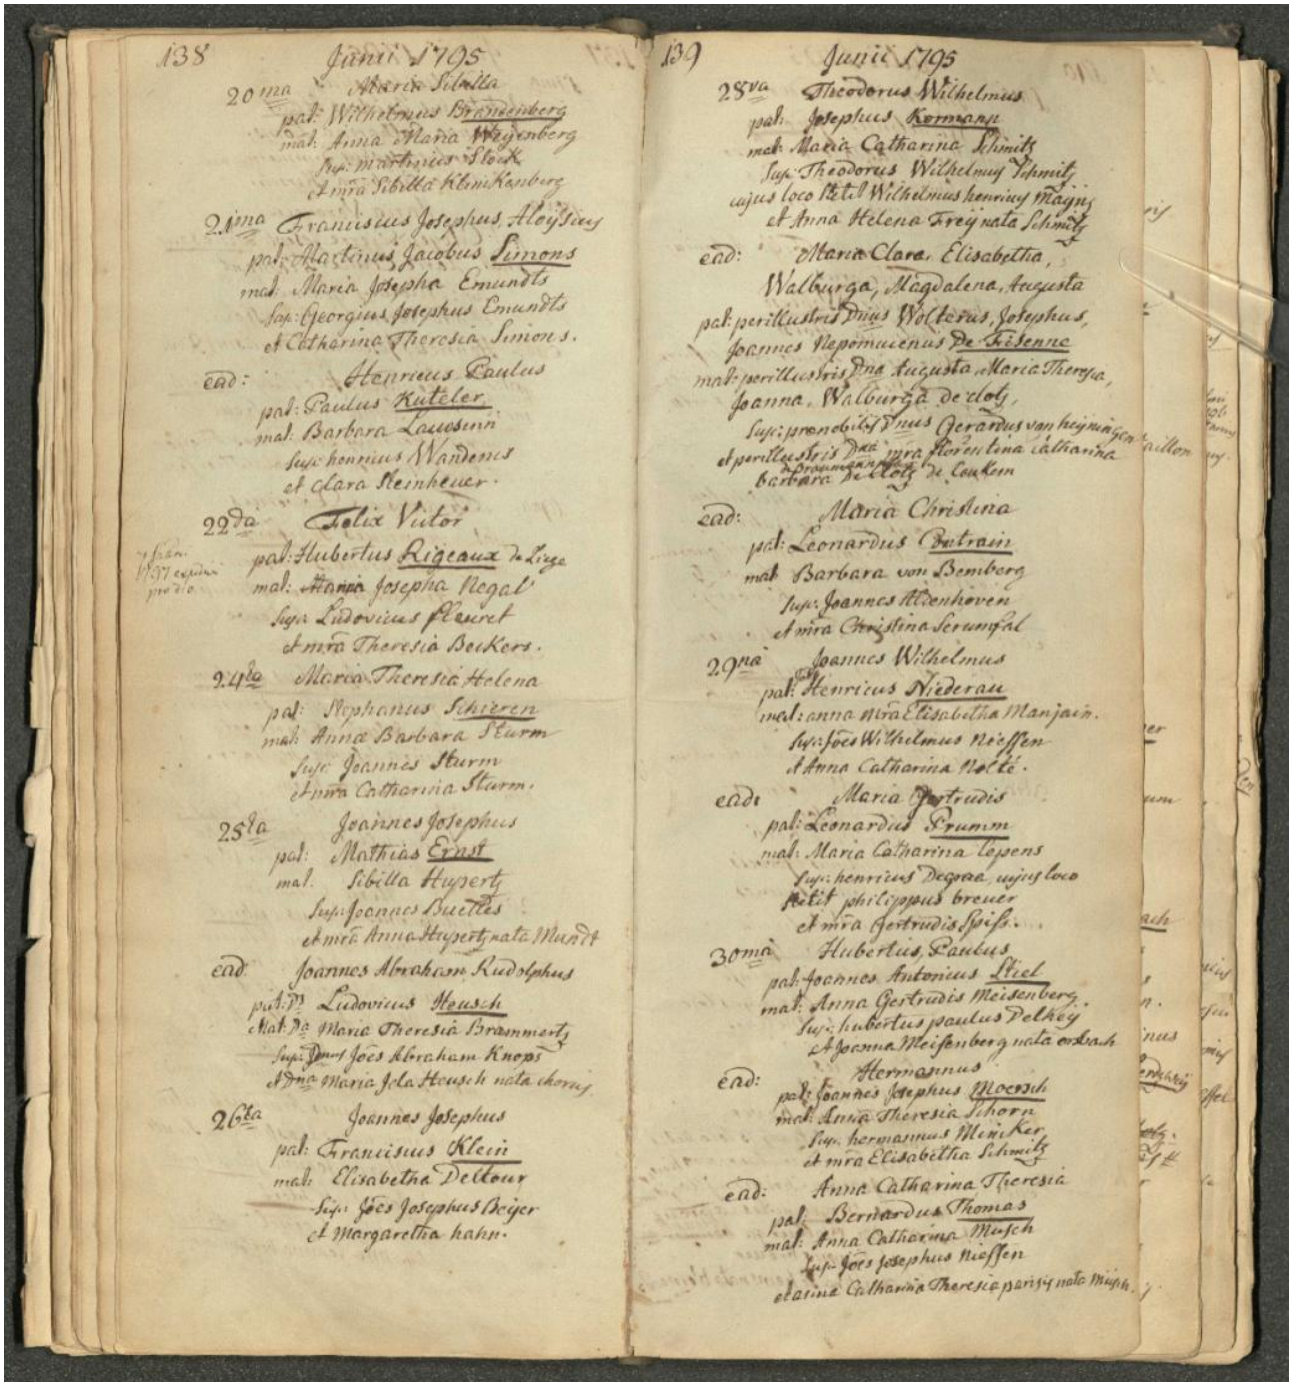 138
Junii 1795
20ma Maria Sibilla
pat: Wilhelmus Brandenberg
mat: Anna Maria Weyenberg
Susc: martinus Stock
et mra Sibilla Klenikenberg
21ma Franciscus Josephus, Aloÿsius
pat: Martinus Jacobus Simons
mat: Maria Josepha Emundts
Susc: Georgius Josephus Emundts
et Catharina Theresia Simons.
ead: Henricus Paulus
pat: Paulus Kuteler
mat: Barbara
Susc: henricus Wandenis
et Clara Steinheuer.
22da Felix Victor
pat: Hubertus Rigeaux de Liege
mat: Maria Josepha Negal
Susc: Ludovicus fleuret
et mra Theresia Beckers.
24ta Maria Theresia Helena
pat: Stephanus Schieren
mat: Anna Barbara Sturm
Susc: Joannes Sturm
et mra Catharina Sturm.
25ta Joannes Josephus
pat: Mathias Ernst
mat. Sibilla Hupertz
Susc: Joannes Buettes
et mra Anna Hupertz nata Mundt
ead Joannes Abraham Rudolphus
pat: Ds Ludovicus Heusch
Mat: Da Maria Theresia Brammertz
Susc: Dnus Joes Abraham Knops
et Dna Maria Jda Heusch nata chorus
26ta Joannes Josephus
pat: Franciscus Klein
mat: Elisabetha Deltour
Susc: Joes Josephus Beijer
et Margaretha hahn.
139
Junii 1795
28va Theodorus Wilhelmus
pat: Josephus Kormann
mat: Maria Catharina Schmitz
Susc: Theodorus Wilhelmus Schmitz
cujus loco stetit Wilhelmus henricus
et Anna Helena Freÿ nata Schmitz
ead: Maria Clara, Elisabetha,
Walburga, Magdalena, Augusta
pat: perillustris Dnus Wolterus, Josephus,
Joannes Nepomucenus De Fisenne
mat: perillustris Dna Augusta, Maria Theresia,
Joanna, Walburga de clotz,
Susc: praenobilis Dnus Gerardus van heijningen
et perillustris Dna mra florentina Catharina
barbara De Clotz de Coukem
ead: Maria Christina
pat: Leonardus Contrain
mat Barbara von Bemberg
Susc: Joannes Aldenhoven
et mra Christina Serumfal
29na Joannes Wilhelmus
pat: Henricus Niederau
mat: anna mra Elisabetha Manjain.
Susc: Joes Wilhelmus Nieffen
et Anna Catharina Nolté.
ead: Maria Gertrudis
pat: Leonardus Prumm
mat: Maria Catharina Cepens
Susc: henricus Degraa cujus loco
stetit philippus breuer
et mra Gertrudis Spiss.
30ma Hubertus, Paulus
pat: Joannes Antonius Stiel
mat: Anna Gertrudis Meisenberg.
Susc: hubertus paulus Pelkeÿ
et Joanna Meisenberg nata orsbach
ead: Hermannus
pat: Joannes Josephus Moersch
mat: Anna Theresia Schorn
Susc: hermannus Miniker
et mra Elisabetha Schmitz
ead: Anna Catharina Theresia
pat: Bernardus Thomas
mat: Anna Catharina Müsch
Susc: Joes Josephus Nieffen
et anna Catharina Theresia nata Müsch.